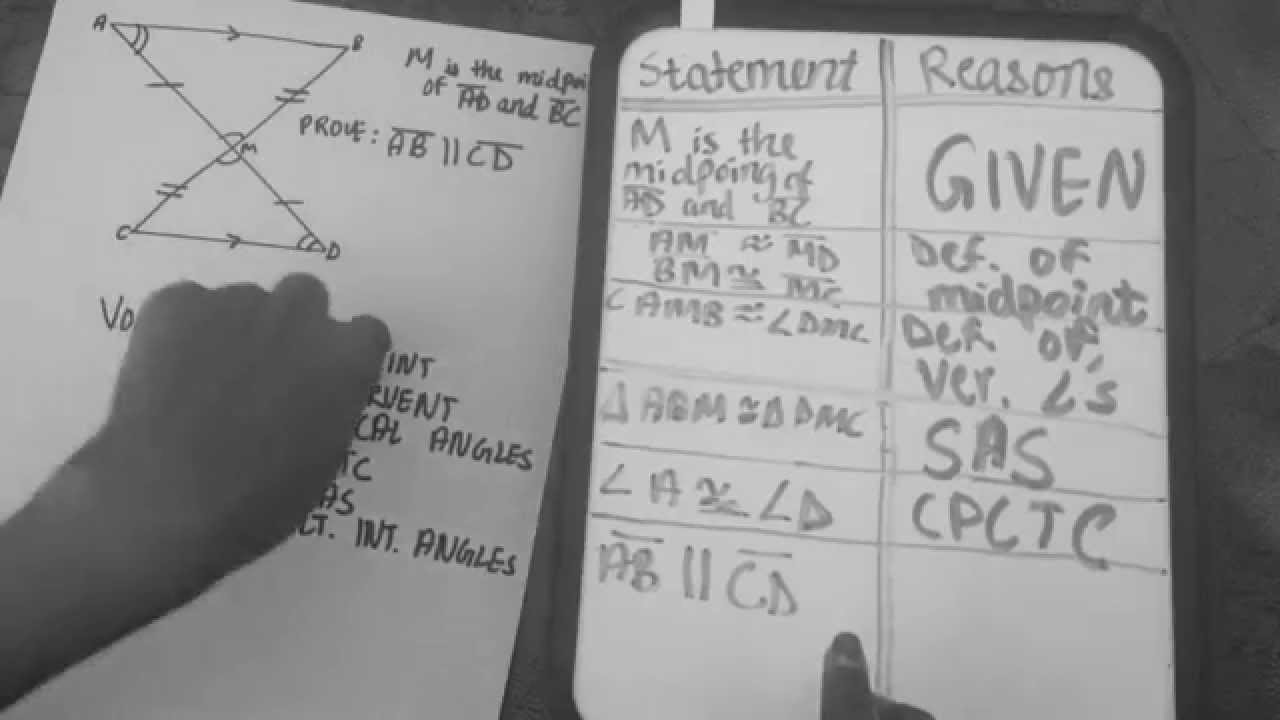 A
B
M is the
of AD and BC
PROVE: AB || CD
M
C
D
INT
ANGLES
AS
INT. ANGLES
Statement
Reasons
M is the
midpoing of
AD and BC
GIVEN
AM ≅ MD
BM ≅ MC
Def. of
midpoint
∠AMB ≅ ∠DMC
Def. of
Ver. ∠'s
Δ ABM ≅ Δ DMC
SAS
∠A ≅ ∠D
CPCTC
AB || CD